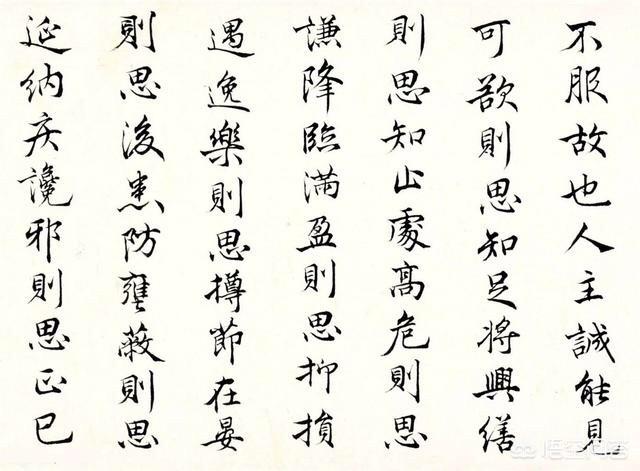 不服故也人主誠能見
可欲則思知足將興繕
則思知止處高危則思
謙降臨滿盈則思抑損
遇逸樂則思撙節在晏
則思後患防壅蔽則思
延納疾讒邪則思正己
悟空问答